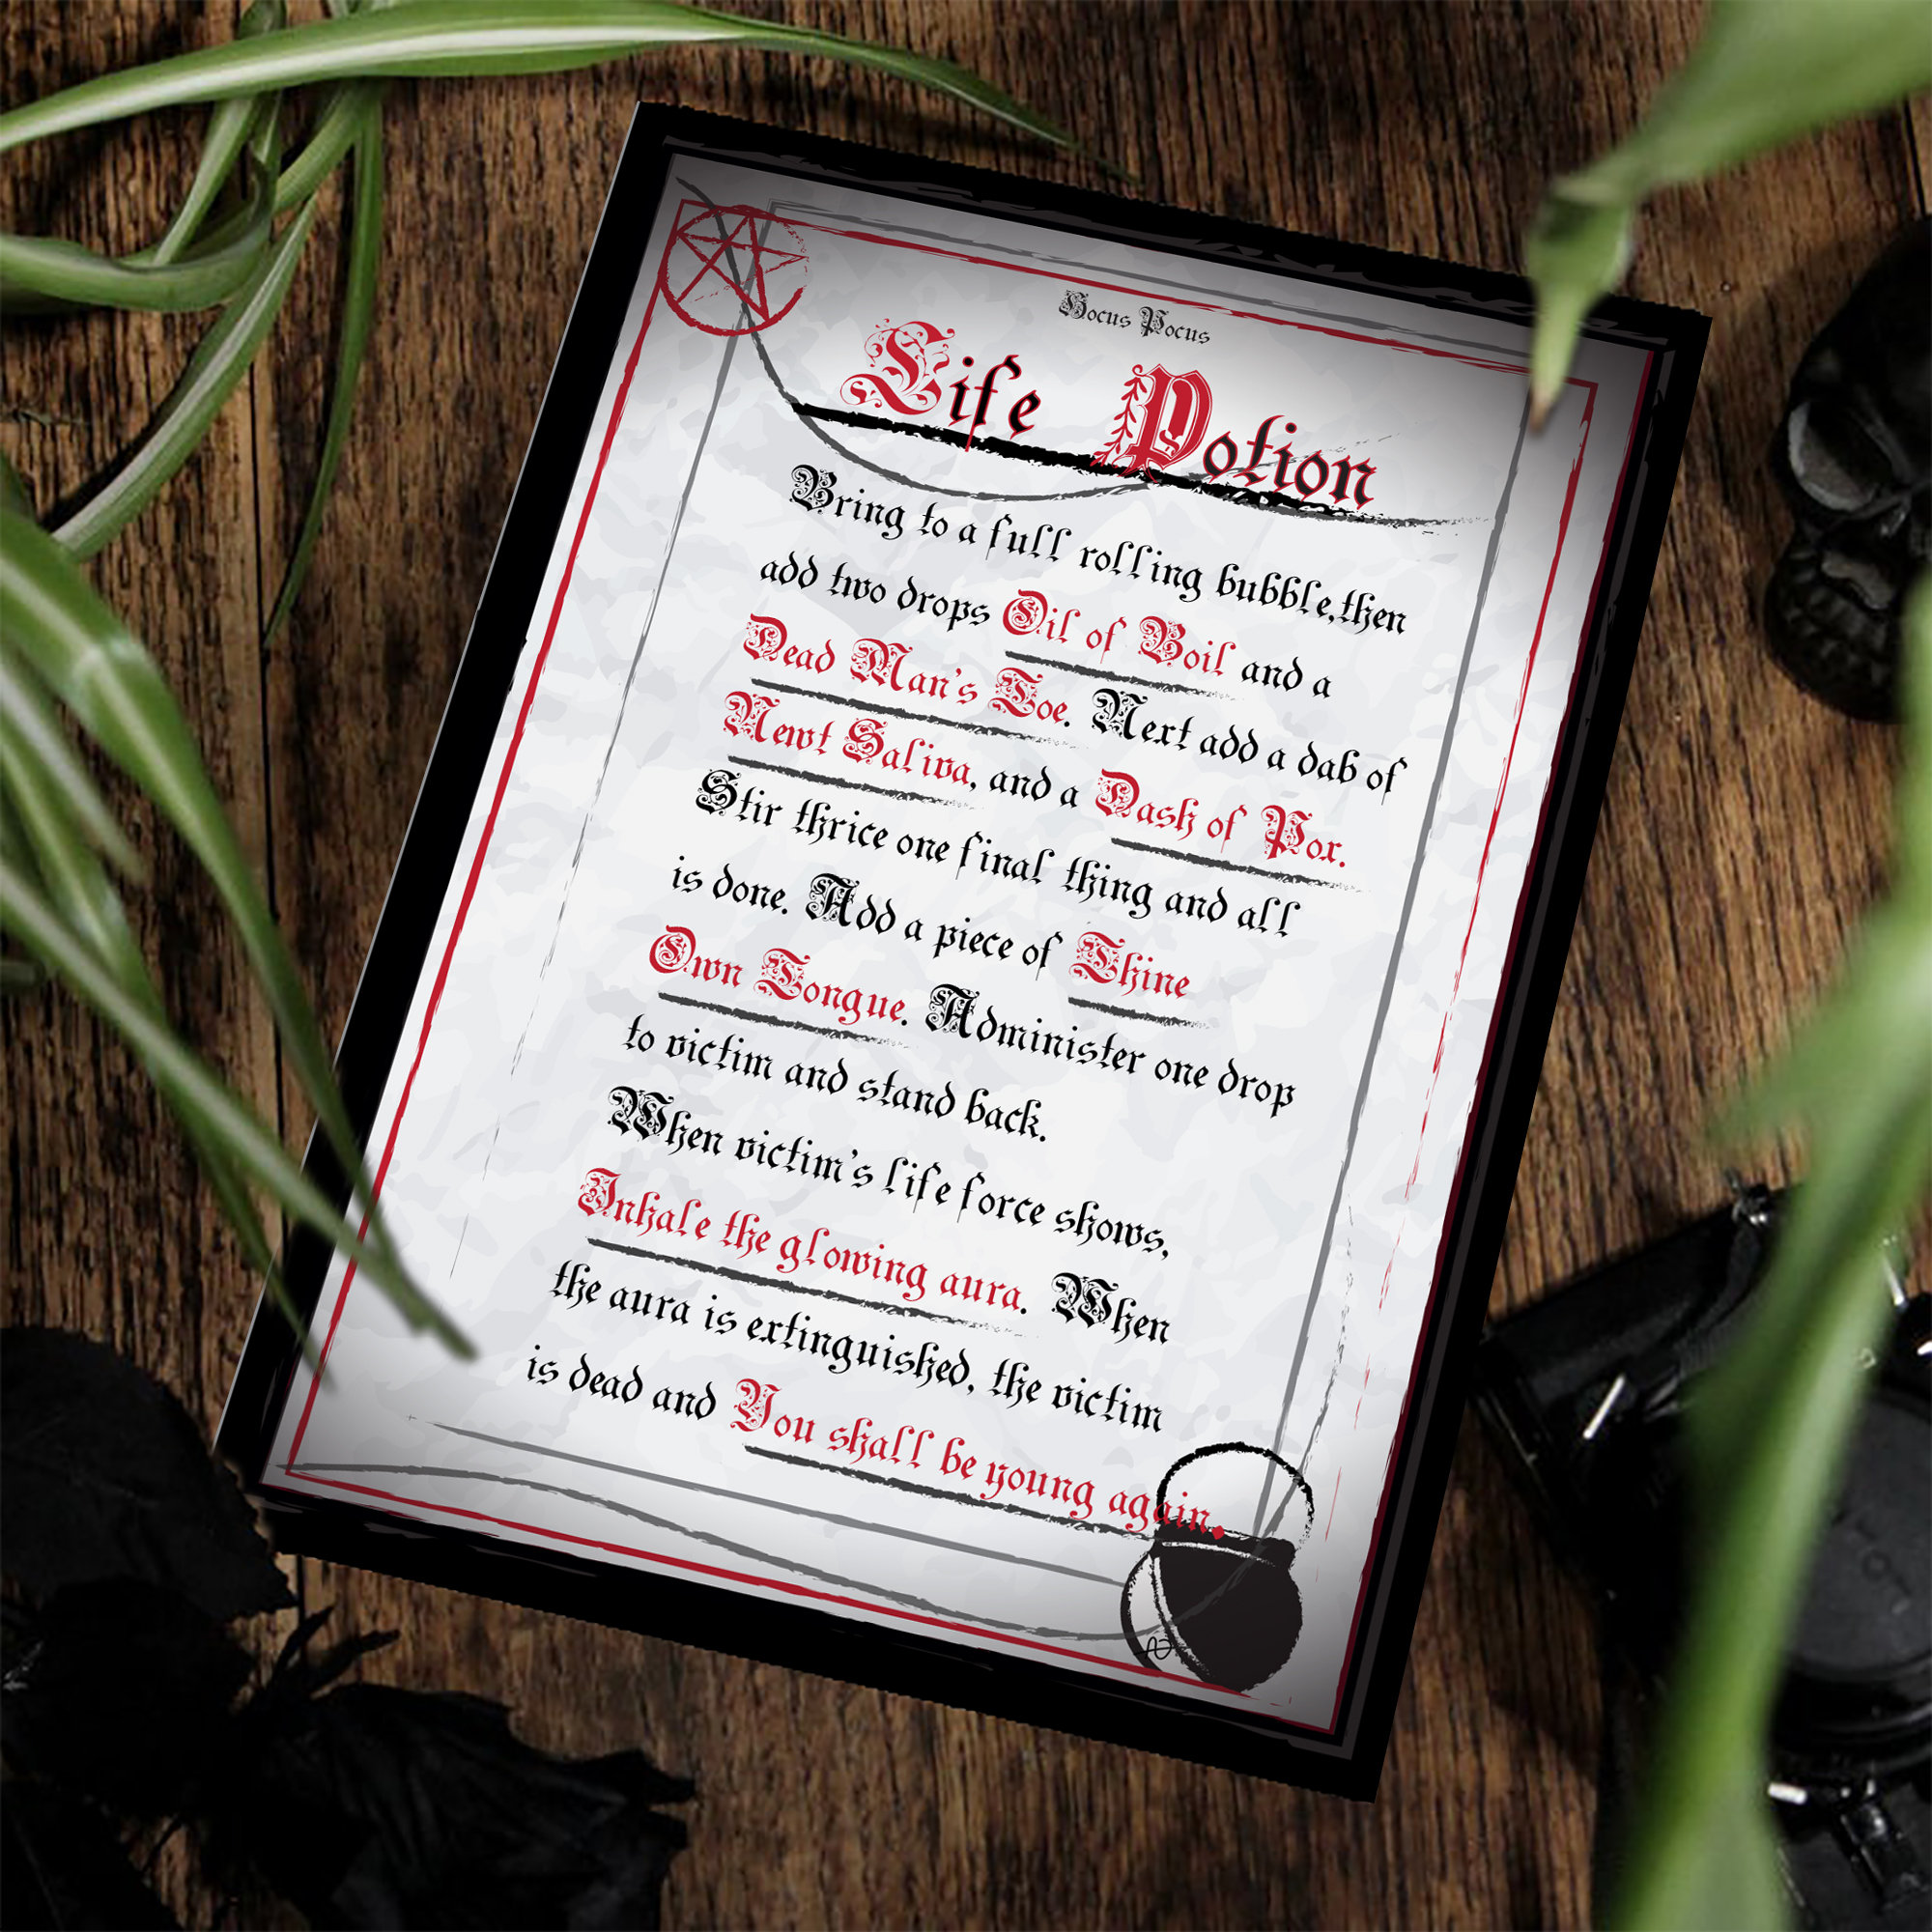 Hocus Pocus
Life Potion
Bring to a full rolling bubble, then
add two drops Oil of Boil and a
Dead Man's Toe. Next add a dab of
Newt Saliva, and a Dash of Pox.
Stir thrice one final thing and all
is done. Add a piece of Thine
Own Tongue. Administer one drop
to victim and stand back.
When victim's life force shows,
Inhale the glowing aura. When
the aura is extinguished, the victim
is dead and You shall be young again.